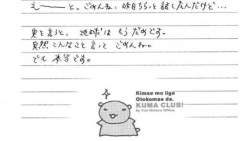 えーーと。ごめんね。昨日ちらっと話したんだけど…
実を言うと。地球はもうだめです。
突然こんなこと言ってごめんね。
でも本当です。
Kimae mo iiga
Otokomae da.
KUMA CLUB!